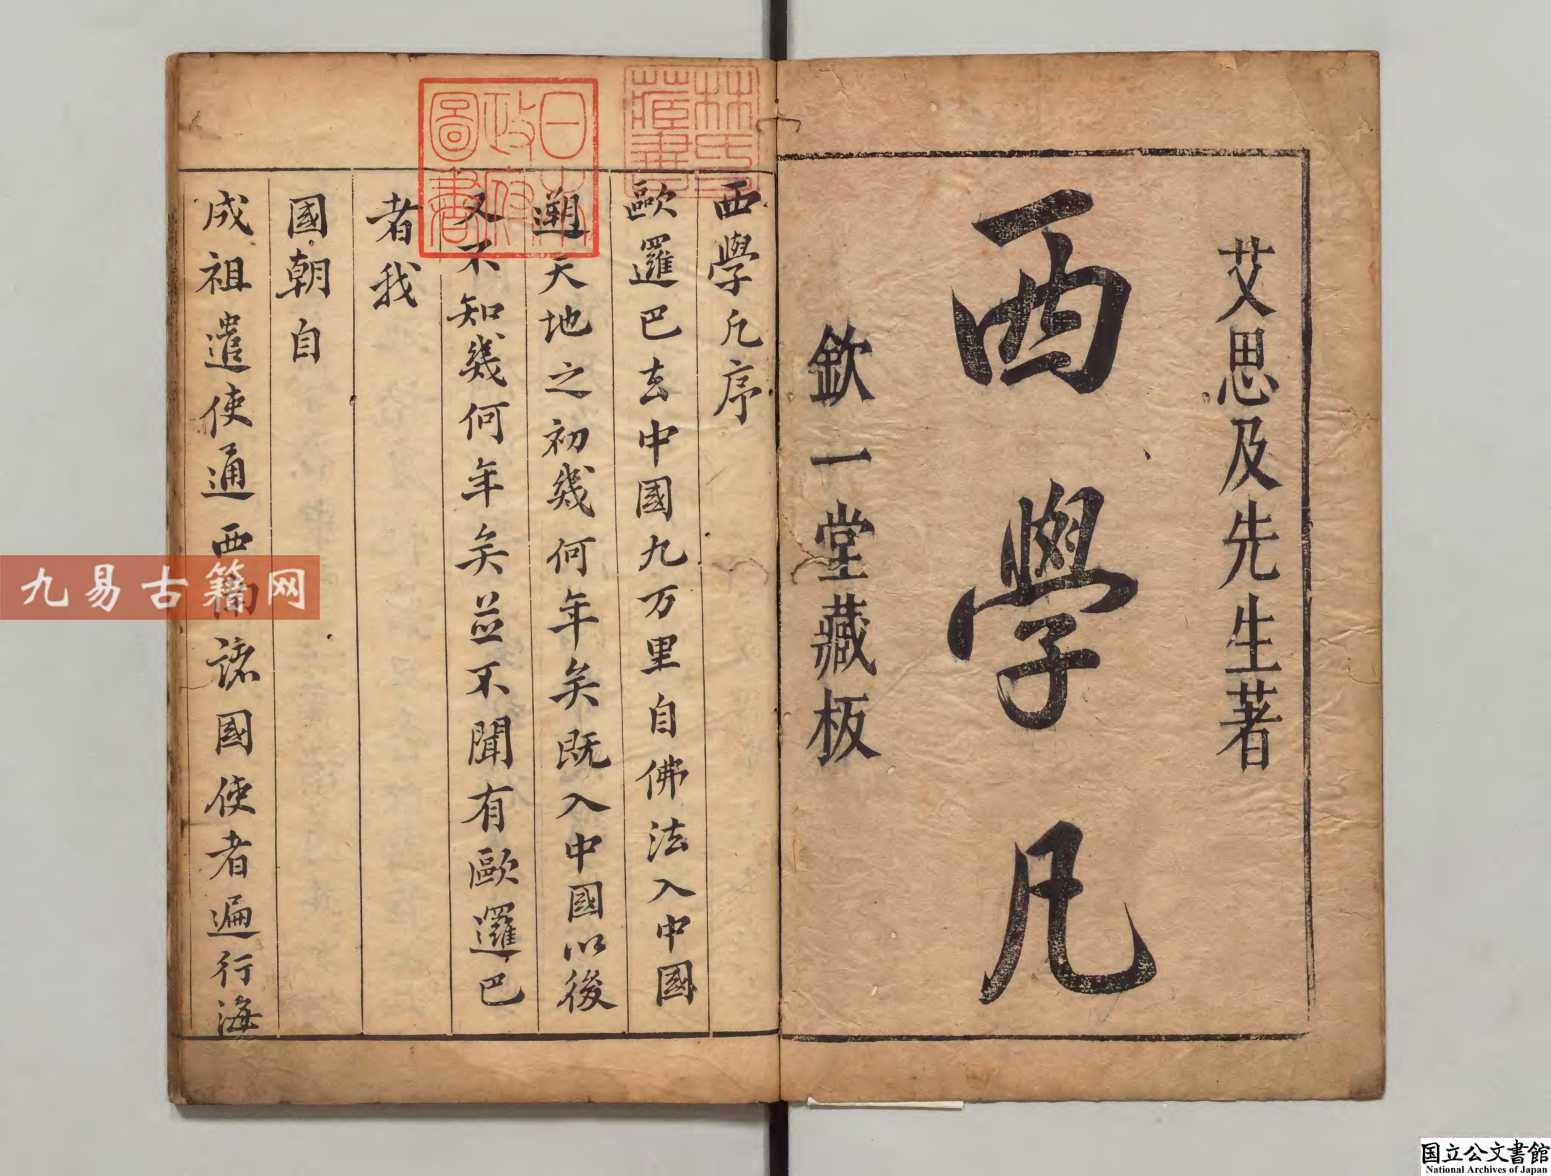 艾思及先生著
西學凡
欽一堂藏板
林氏藏書
日本政府圖書
西學凡序
歐邏巴去中國九万里自佛法入中國
遡天地之初幾何年矣既入中國以後
又不知幾何年矣並不聞有歐邏巴
者我
國朝自
成祖遣使通西南諸國使者遍行海
九易古籍网
国立公文書館
National Archives of Japan